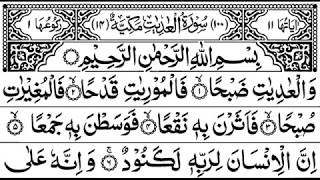 اٰيَاتُهَا ١١ (١٠٠) سُوْرَةُ الْعٰدِيٰتِ مَكِّيَّةٌ (١٤) رُكُوْعُهَا ١
بِسْمِ اللّٰهِ الرَّحْمٰنِ الرَّحِيْمِ
وَالْعٰدِيٰتِ ضَبْحًا ۙ ١ فَالْمُوْرِيٰتِ قَدْحًا ۙ ٢ فَالْمُغِيْرٰتِ
صُبْحًا ۙ ٣ فَاَثَرْنَ بِهٖ نَقْعًا ۙ ٤ فَوَسَطْنَ بِهٖ جَمْعًا ۙ ٥
اِنَّ الْاِنْسَانَ لِرَبِّهٖ لَكَنُوْدٌ ۚ ٦ وَاِنَّهٗ عَلٰى